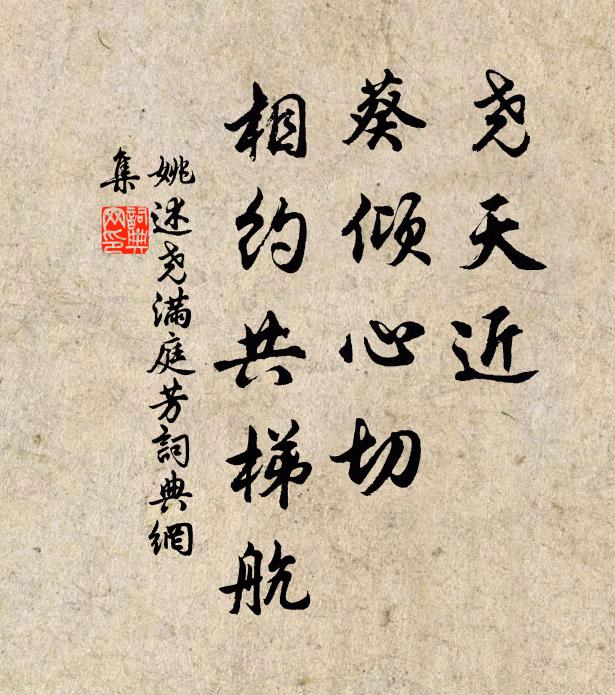 尧天近
葵倾心切
相约共梯航
姚述尧满庭芳詞典網
集
詞典
网印